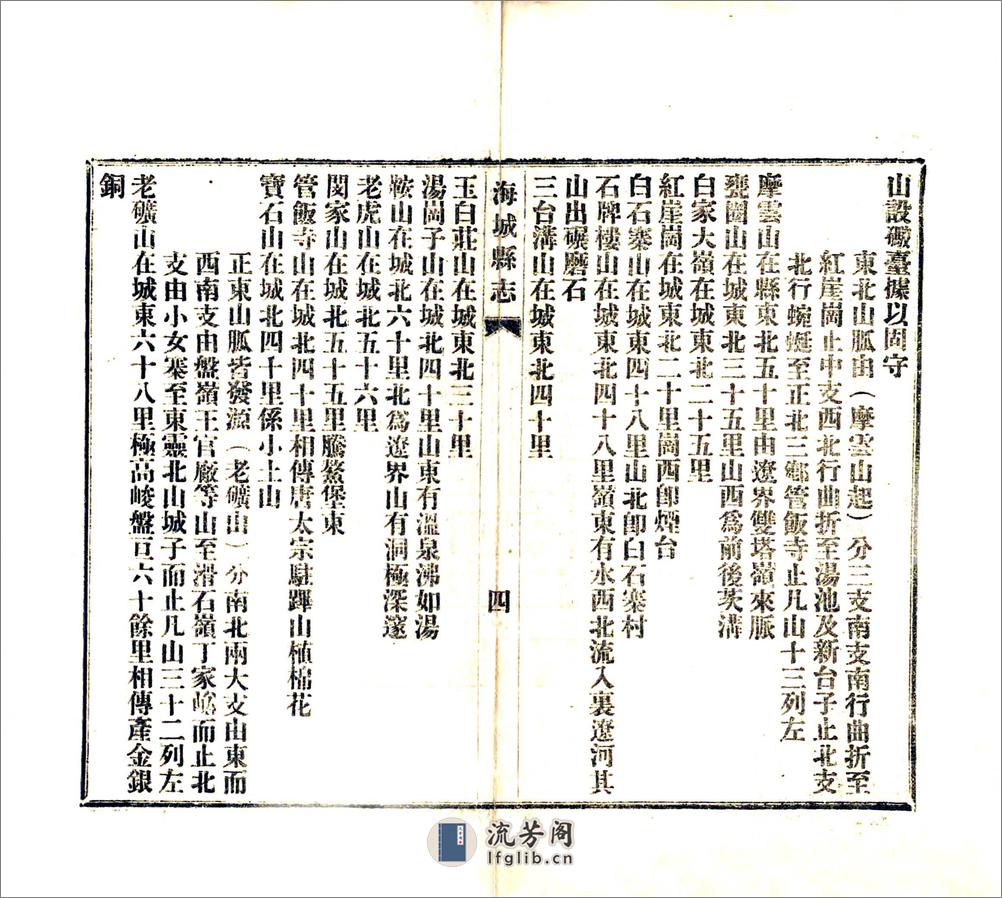 山設礮臺據以固守
東北山脈由（摩雲山起）分三支南支南行曲折至
紅崖崗止中支西北行曲折至湯池及新台子止北支
北行蜿蜒至正北三鄉管飯寺止凡山十三列左
摩雲山在縣東北五十里由遼界雙塔嶺來脈
甕圈山在城東北三十五里山西爲前後英溝
白家大嶺在城東北二十五里
紅崖崗在城東北二十里崗西卽煙台
白石寨山在城東四十八里山北卽白石寨村
石牌樓山在城東北四十八里嶺東有水西北流入裏遼河其
山出碾磨石
三台溝山在城東北四十里
海城縣志
四
玉白莊山在城東北三十里
湯崗子山在城北四十里山東有溫泉沸如湯
鞍山在城北六十里北爲遼界山有洞極深邃
老虎山在城北五十六里
閔家山在城北五十五里騰鰲堡東
管飯寺山在城北四十里相傳唐太宗駐蹕山植棉花
寶石山在城北四十里係小土山
正東山脈皆發源（老礦山）分南北兩大支山東而
西南支由盤嶺王官廠等山至滑石嶺丁家峪而止北
支由小女寨至東靈北山城子而止凡山三十二列左
老礦山在城東六十八里極高峻盤亘六十餘里相傳產金銀
銅
流芳阁
lfglib.cn